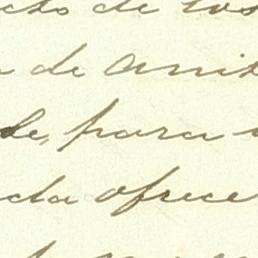 cto de los
de amis
de, para
cda ofrece